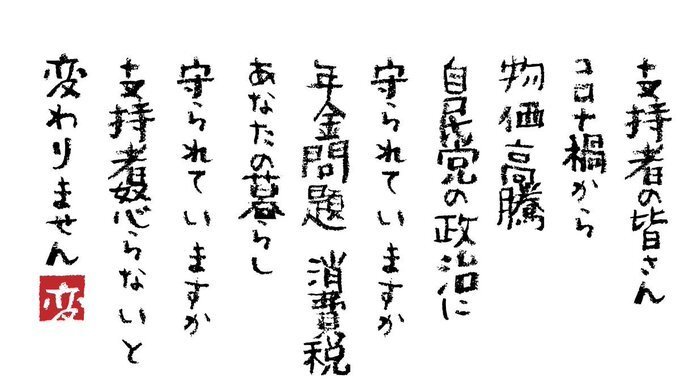 支持者の皆さん
コロナ禍から
物価高騰
自民党の政治に
守られていますか
年金問題 消費税
あなたの暮らし
守られていますか
支持者怒らないと
変わりません
変